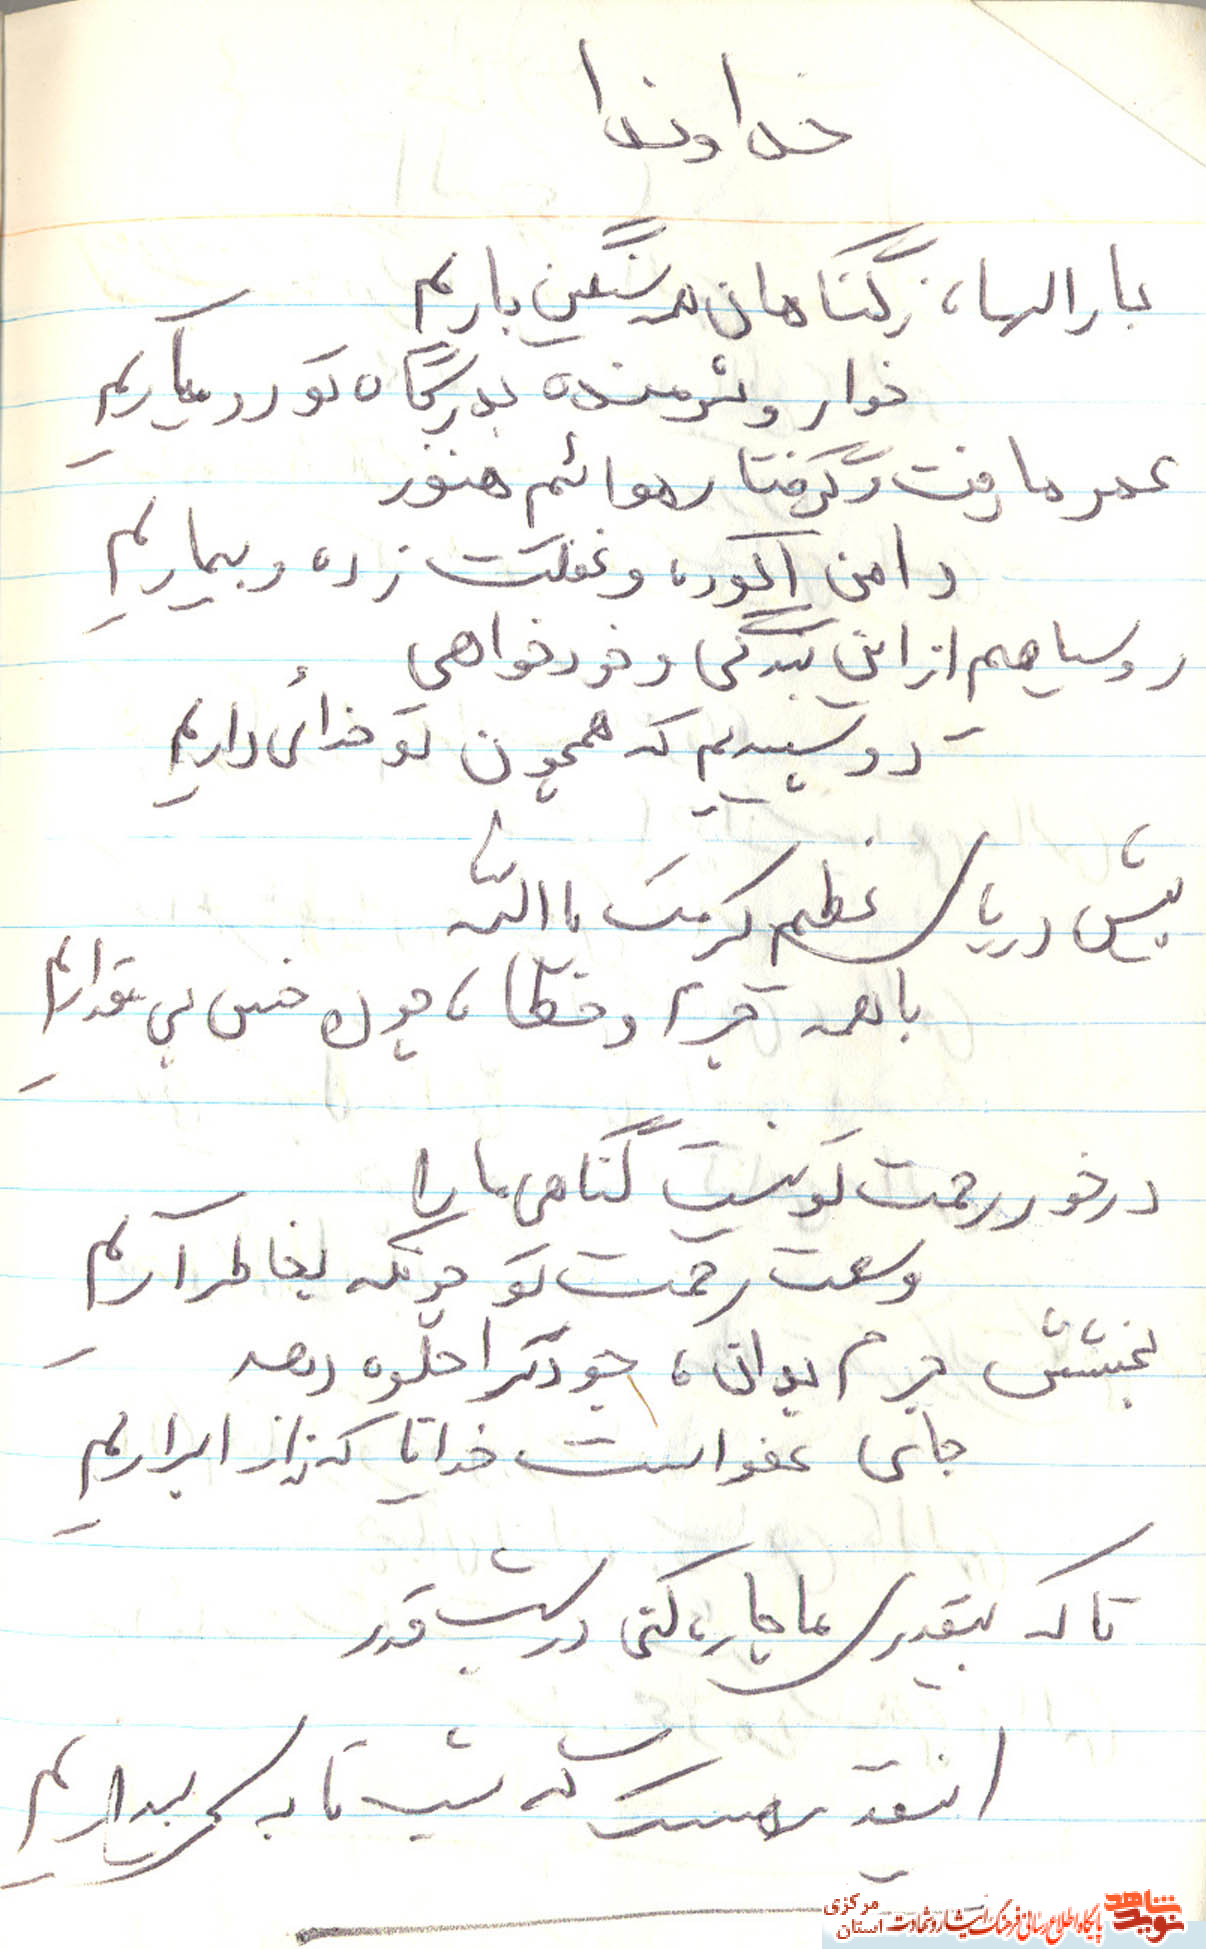 خداوندا
بارالها، زگناهان همه سنگین باریم
خوار و شرمنده بدرگاه تو رو میآریم
عمر ما رفت و گرفتار هوائیم هنوز
دامن آلوده و غفلت زده و بیماریم
روسیاهیم از این بندگی و خودخواهی
روسپیدیم که همچون تو خدائی داریم
پیش دریای عظیم کرمت یا الله
با همه جرم و خطا، چون خس بی مقداریم
درخور رحمت تو نیست گناهی ما را
وسعت رحمت تو چونکه بخاطر آریم
بخشش جرم بدان، جود ترا جلوه دهد
جای عفو است خدایا که نه از ابراریم
تا که بیقدری ما چاره کنی در شب قدر
اینقدر هست که شب تا به سحر بیداریم
نوید شاهد
پایگاه اطلاع رسانی فرهنگ ایثار و شهادت
استان مرکزی